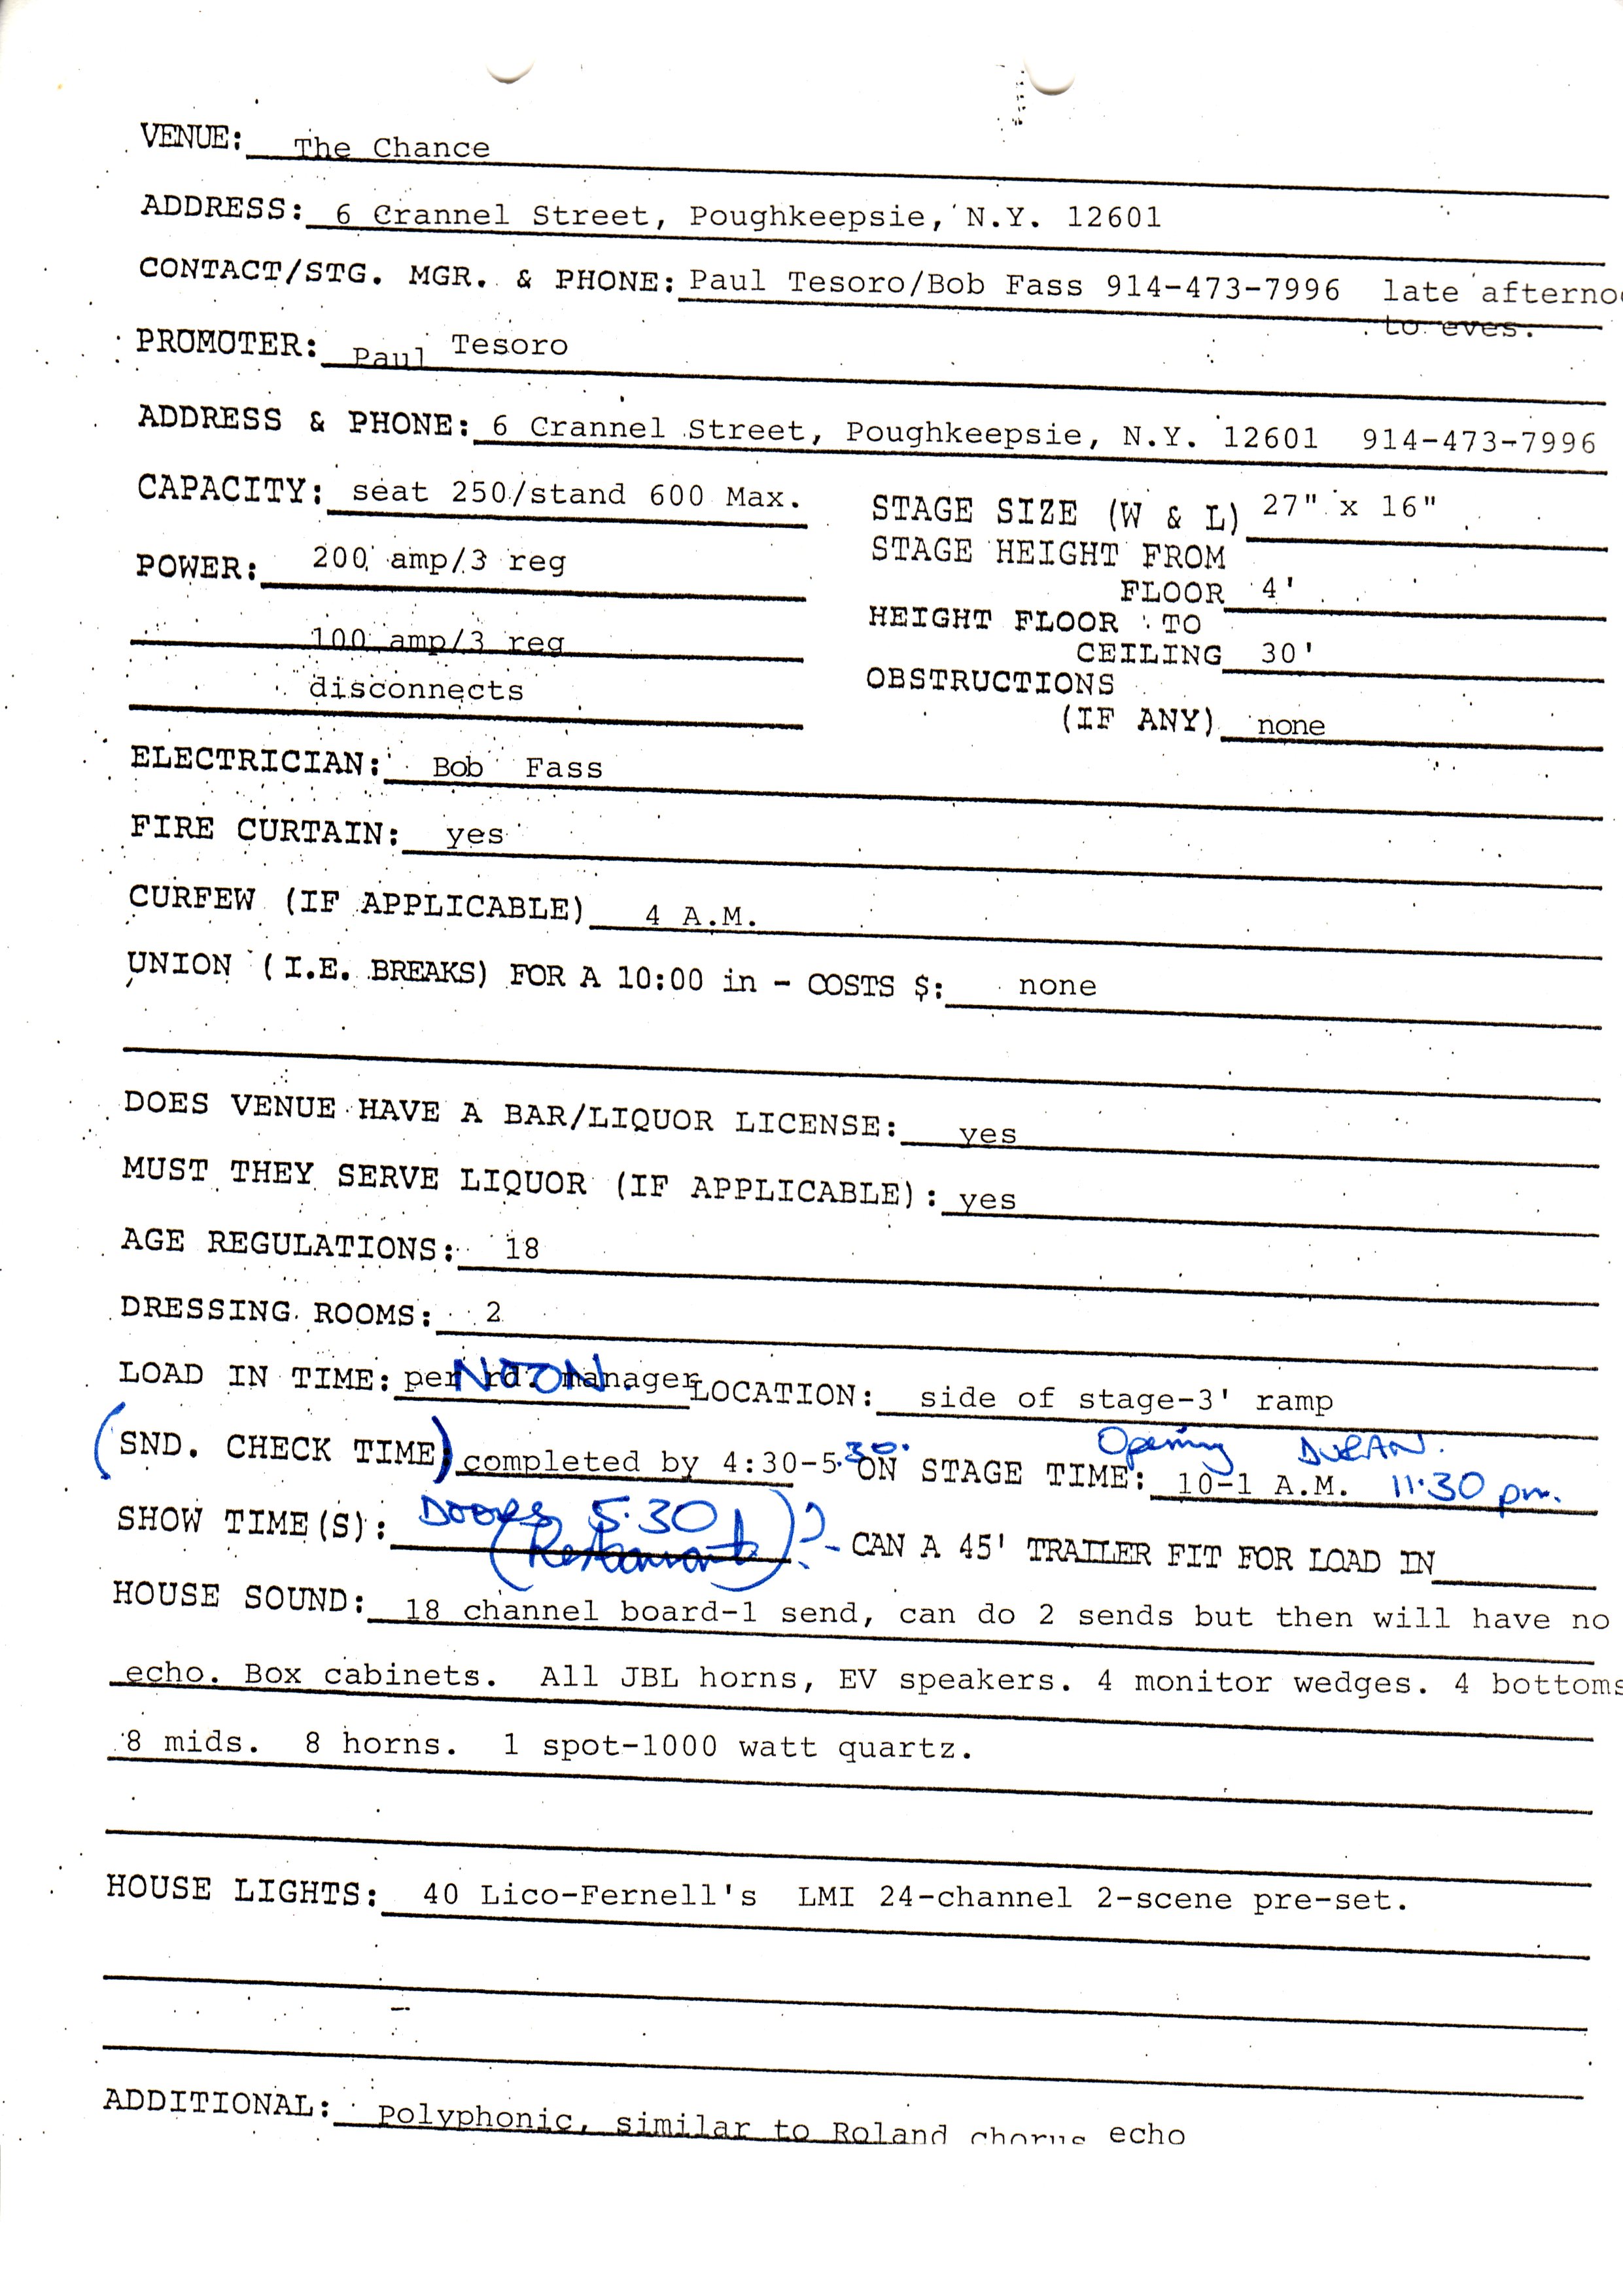 VENUE: The Chance
ADDRESS: 6 Crannel Street, Poughkeepsie, N.Y. 12601
CONTACT/STG. MGR. & PHONE: Paul Tesoro/Bob Fass 914-473-7996 late afterno
to eves.
PROMOTER: Paul Tesoro
ADDRESS & PHONE: 6 Crannel Street, Poughkeepsie, N.Y. 12601 914-473-7996
CAPACITY: seat 250/stand 600 Max.
STAGE SIZE (W & L) 27" x 16"
POWER: 200 amp/3 reg
100 amp/3 reg
disconnects
STAGE HEIGHT FROM
FLOOR 4'
HEIGHT FLOOR TO
CEILING 30'
OBSTRUCTIONS
(IF ANY) none
ELECTRICIAN: Bob Fass
FIRE CURTAIN: yes
CURFEW (IF APPLICABLE) 4 A.M.
UNION (I.E. BREAKS) FOR A 10:00 in - COSTS $: none
DOES VENUE HAVE A BAR/LIQUOR LICENSE: yes
MUST THEY SERVE LIQUOR (IF APPLICABLE): yes
AGE REGULATIONS: 18
DRESSING ROOMS: 2
LOAD IN TIME: per rd. manager NOON. LOCATION: side of stage-3' ramp
Opening DURAN.
(SND. CHECK TIME) completed by 4:30-5.30. ON STAGE TIME: 10-1 A.M. 11·30 pm.
SHOW TIME(S): DOORS 5·30
(Restaurant)? - CAN A 45' TRAILER FIT FOR LOAD IN
HOUSE SOUND: 18 channel board-1 send, can do 2 sends but then will have no
echo. Box cabinets. All JBL horns, EV speakers. 4 monitor wedges. 4 bottoms
8 mids. 8 horns. 1 spot-1000 watt quartz.
HOUSE LIGHTS: 40 Lico-Fernell's LMI 24-channel 2-scene pre-set.
ADDITIONAL: Polyphonic, similar to Roland chorus echo